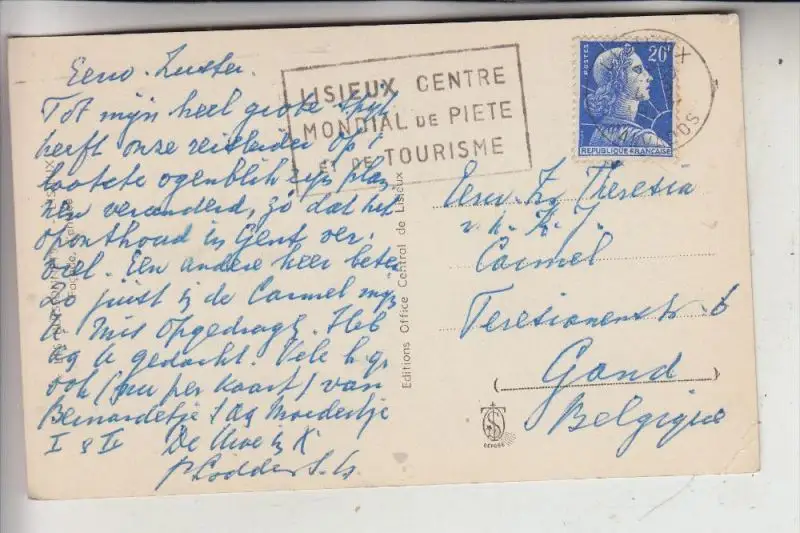 Eerw. Zuster.
Tot mijn heel grote spijt
heeft onze reisleider op 't
laatste ogenblik zijn plan-
nen veranderd, zó dat het
oponthoud in Gent ver-
viel. Een andere keer beter
Zo juist in de Carmel mijn
H. Mis opgedragen. Heb
aan U gedacht. Vele h. gr.
ook (nu per kaart) van
Bernardetje
Moedertje
I & II De Uwe in X
LISIEUX CENTRE
MONDIAL DE PIETE
ET DE TOURISME
POSTES
20F
REPUBLIQUE FRANCAISE
CALVADOS
Editions Office Central de Lisieux
LISIEUX
Façade
Eerw. Zr. Theresia
v. h. K. J.
Carmel
Teresianenstr. 6
(Gand)
Belgique
DÉPOSÉ